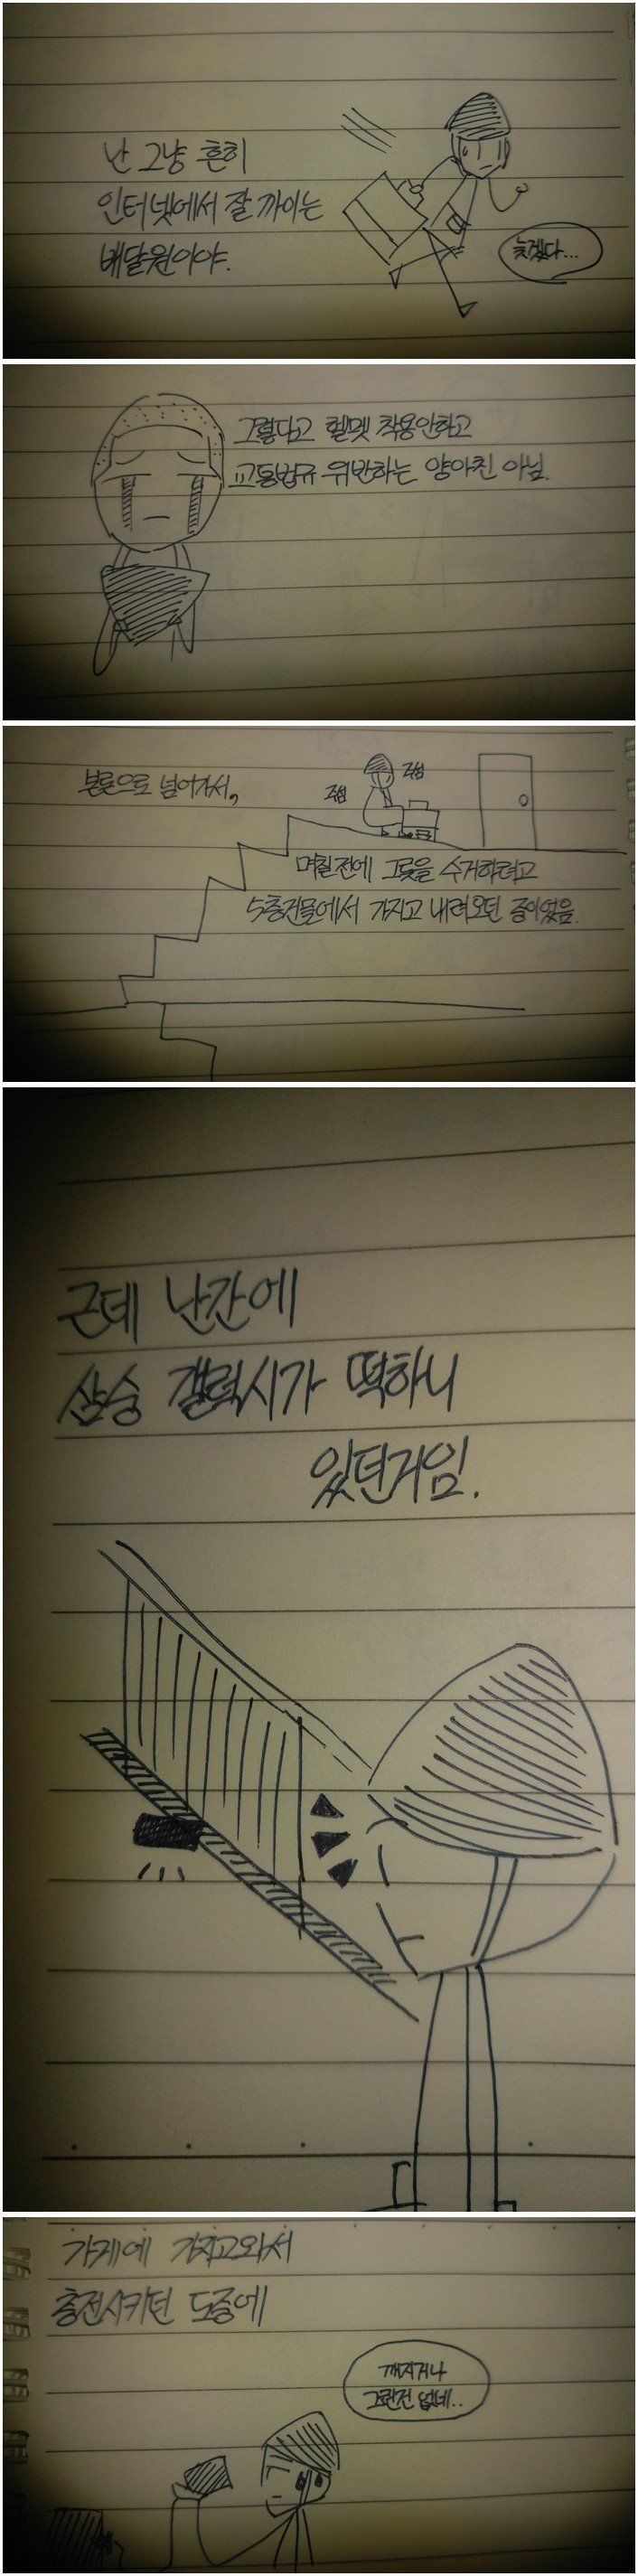 난 그냥 흔히
인터넷에서 잘 까이는
배달원이야.
늦겠다...
그렇다고 헬멧 착용안하고
교통법규 위반하는 양아친 아님.
본론으로 넘어가서,
주섬
주섬
며칠전에 그릇을 수거하려고
5층건물에서 가지고 내려오던 중이었음.
근데 난간에
삼숭 갤럭시가 떡하니
있던거임.
가게에 가지고와서
충전시키던 도중에
깨지거나
그런건 없네..